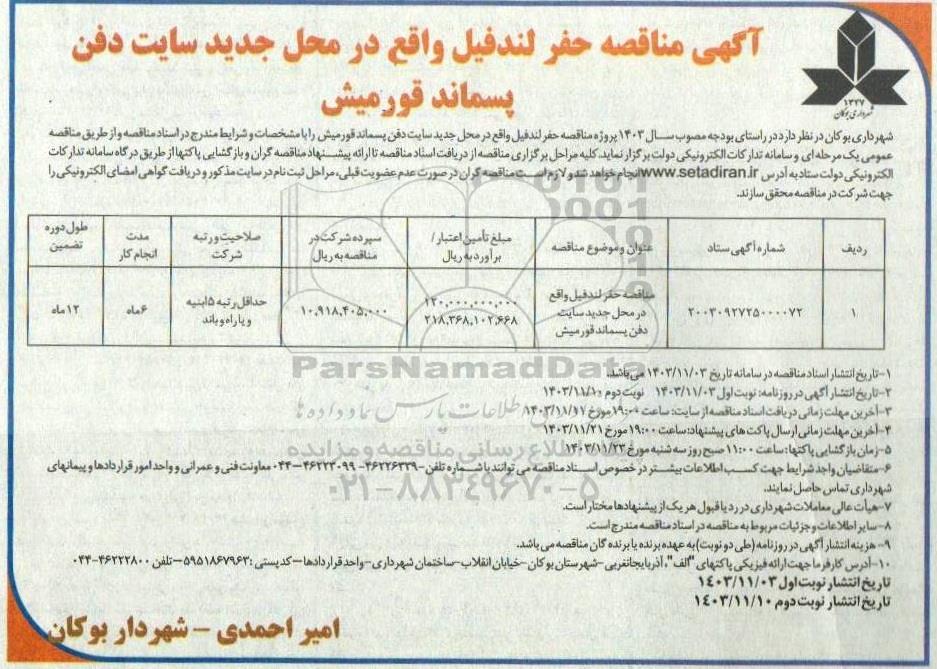 آگهی مناقصه حفر لندفیل واقع در محل جدید سایت دفن
پسماند قورمیش
۱۳۲۷
شهرداری بوکان
شهرداری بوکان در نظر دارد در راستای بودجه مصوب سال ۱۴۰۳ پروژه مناقصه حفر لندفیل واقع در محل جدید سایت دفن پسماند قورمیش را با مشخصات و شرایط مندرج در اسناد مناقصه و از طریق مناقصه
عمومی یک مرحله ای و سامانه تدارکات الکترونیکی دولت برگزار نماید. کلیه مراحل برگزاری مناقصه از دریافت اسناد مناقصه تا ارائه پیشنهاد مناقصه گران و بازگشایی پاکتها از طریق درگاه سامانه تدارکات
الکترونیکی دولت ستاد به آدرس www.setadiran.ir انجام خواهد شد و لازم است مناقصه گران در صورت عدم عضویت قبلی، مراحل ثبت نام در سایت مذکور و دریافت گواهی امضای الکترونیکی را
جهت شرکت در مناقصه محقق سازند.
ردیف شماره آگهی ستاد عنوان و موضوع مناقصه مبلغ تأمین اعتبار/ برآورد به ریال سپرده شرکت در مناقصه به ریال صلاحیت و رتبه شرکت مدت انجام کار طول دوره تضمین
۱ ۲۰۰۳۰۹۲۷۲۵۰۰۰۰۷۲ مناقصه حفر لندفیل واقع در محل جدید سایت دفن پسماند قورمیش ۱۲۰,۰۰۰,۰۰۰,۰۰۰ ۲۱۸,۳۶۸,۱۰۲,۶۶۸ ۱۰,۹۱۸,۴۰۵,۰۰۰ حداقل رتبه ۵ ابنیه و یا راه و باند ۶ ماه ۱۲ ماه
ParsNamadData
۱- تاریخ انتشار اسناد مناقصه در سامانه تاریخ ۱۴۰۳/۱۱/۰۳ می باشد.
۲- تاریخ انتشار آگهی در روزنامه: نوبت اول ۱۴۰۳/۱۱/۰۳ نوبت دوم ۱۴۰۳/۱۱/۱۰
۳- آخرین مهلت زمانی دریافت اسناد مناقصه از سایت: ساعت ۱۹:۰۰ مورخ ۱۴۰۳/۱۱/۱۱
۴- آخرین مهلت زمانی ارسال پاکت های پیشنهاد: ساعت ۱۹:۰۰ مورخ ۱۴۰۳/۱۱/۲۱
۵- زمان بازگشایی پاکتها: ساعت ۱۱:۰۰ صبح روز سه شنبه مورخ ۱۴۰۳/۱۱/۲۳
۶- متقاضیان واجد شرایط جهت کسب اطلاعات بیشتر در خصوص اسناد مناقصه می توانند با شماره تلفن ۴۶۲۲۶۳۳۹- ۴۶۲۲۳۰۹۹-۰۴۴ معاونت فنی و عمرانی و واحد امور قراردادها و پیمانهای
شهرداری تماس حاصل نمایند.
۰۲۱-۸۸۳۴۹۶۷۰-۵
۷- هیأت عالی معاملات شهرداری در رد یا قبول هر یک از پیشنهادها مختار است.
۸- سایر اطلاعات و جزئیات مربوط به مناقصه در اسناد مناقصه مندرج است.
۹- هزینه انتشار آگهی در روزنامه (طی دو نوبت) به عهده برنده یا برنده گان مناقصه می باشد.
۱۰- آدرس کارفرما جهت ارائه فیزیکی پاکتهای "الف"، آذربایجانغربی- شهرستان بوکان- خیابان انقلاب- ساختمان شهرداری- واحد قراردادها- کدپستی: ۵۹۵۱۸۶۷۹۶۳- تلفن ۴۶۲۲۲۸۰۰-۰۴۴
تاریخ انتشار نوبت اول ۱۴۰۳/۱۱/۰۳
تاریخ انتشار نوبت دوم ۱۴۰۳/۱۱/۱۰
امیر احمدی - شهردار بوکان